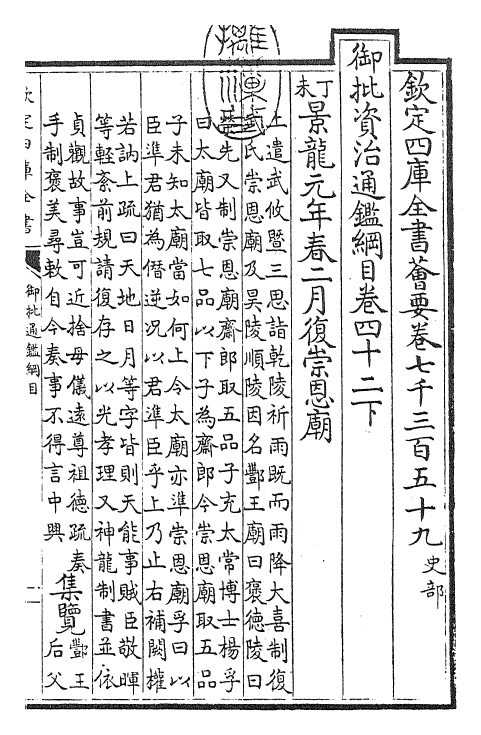 欽定四庫全書薈要卷七千三百五十九 史部
御批資治通鑑綱目卷四十二下
丁未 景龍元年春二月復崇恩廟
上遣武攸暨三思詣乾陵祈雨既而雨降大喜制復
武氏崇恩廟及昊陵順陵因名酆王廟曰褒德陵曰
榮先又制崇恩廟齋郎取五品子充太常博士楊孚
曰太廟皆取七品以下子為齋郎今崇恩廟取五品
子未知太廟當如何上令太廟亦準崇恩廟孚曰以
臣準君猶為僭逆況以君準臣乎上乃止右補闕權
若訥上疏曰天地日月等字皆則天能事賊臣敬暉
等輕紊前規請復存之以光孝理又神龍制書並依
貞觀故事豈可近捨母儀遠尊祖德疏奏
手制褒美尋敕自今奏事不得言中興
集覽
酆王
后父
欽定四庫全書
御批通鑑綱目